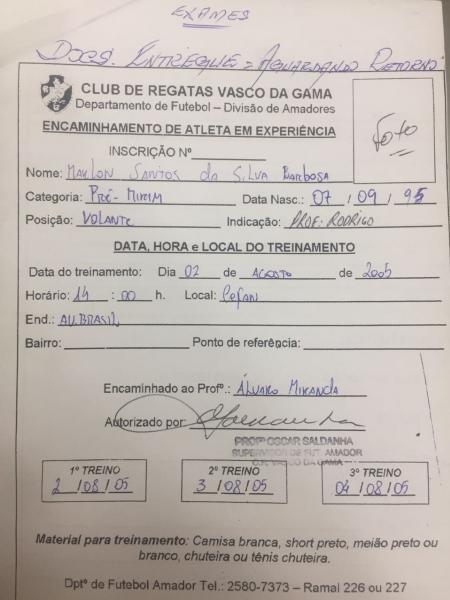 EXAMES
DOCS. ENTREGUE = AGUARDANDO RETORNO
CLUB DE REGATAS VASCO DA GAMA
Departamento de Futebol – Divisão de Amadores
ENCAMINHAMENTO DE ATLETA EM EXPERIÊNCIA
Foto
INSCRIÇÃO Nº
Nome: MAYLON SANTOS da SILVA BARBOSA
Categoria: PRÉ-MIRIM Data Nasc.: 07 / 09 / 95
Posição: VOLANTE Indicação: PROF: RODRIGO
DATA, HORA e LOCAL DO TREINAMENTO
Data do treinamento: Dia 02 de AGOSTO de 2005
Horário: 14 : 00 h. Local: Cefan
End.: AV. BRASIL
Bairro: Ponto de referência:
Encaminhado ao Profº.: ÁLVARO MIRANDA
Autorizado por:
PROFº OSCAR SALDANHA
SUPERVISOR DE FUT. AMADOR
C.R. VASCO DA GAMA
1º TREINO 2º TREINO 3º TREINO
2 /08 /05 3 /08 /05 04 /08 /05
Material para treinamento: Camisa branca, short preto, meião preto ou
branco, chuteira ou tênis chuteira.
Dptº de Futebol Amador Tel.: 2580-7373 – Ramal 226 ou 227